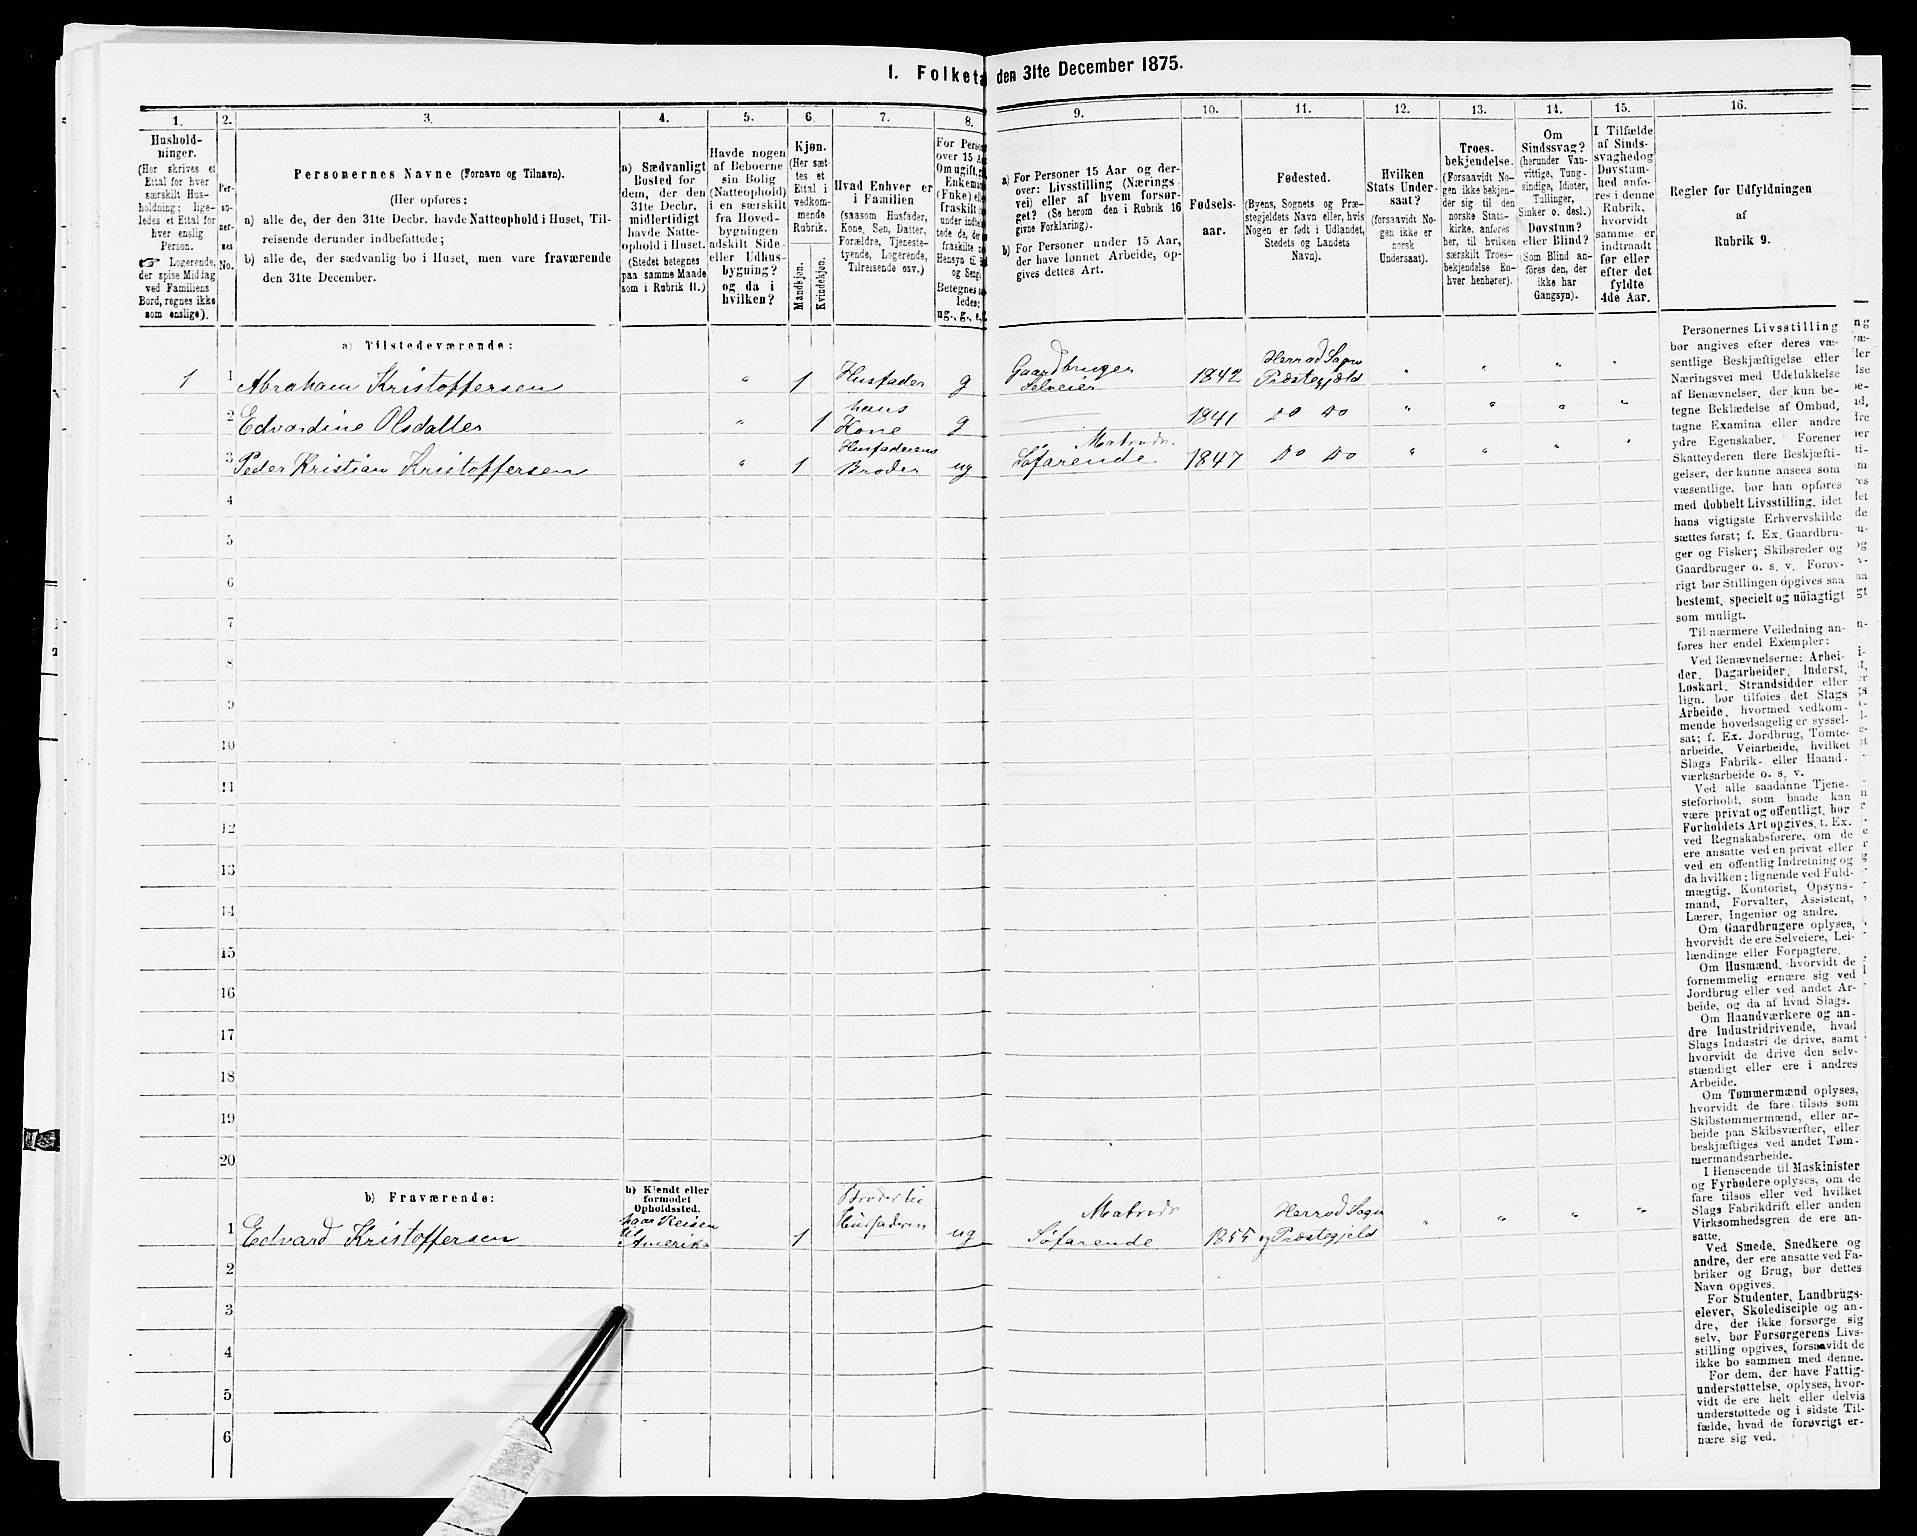 I. Folketa den 31te December 1875.
1. 2. 3. 4. 5. 6. 7. 8. 9. 10. 11. 12. 13. 14. 15. 16.
Hushold-
ninger.
(Her skrives et
Ettal for hver
særskilt Hus-
holdning; lige-
ledes et Ettal for
hver enslig
Person.
☞ Logerende,
der spise Middag
ved Familiens
Bord, regnes ikke
som enslige).
Per-
so-
ner-
nes
No.
Personernes Navne (Fornavn og Tilnavn).
(Her opføres:
a) alle de, der den 31te Decbr. havde Natteophold i Huset, Til-
reisende derunder indbefattede;
b) alle de, der sædvanlig bo i Huset, men vare fraværende
den 31te December.
a) Sædvanligt
Bosted for
dem, der den
31te Decbr.
midlertidigt
havde Natte-
ophold i Huset.
(Stedet betegnes
paa samme Maade
som i Rubrik 11.)
Havde nogen
af Beboerne
sin Bolig
(Natteophold)
i en særskilt
fra Hoved-
bygningen
adskilt Side-
eller Udhus-
bygning?
og da i
hvilken?
Kjøn.
(Her sæt-
tes et
Ettal i
vedkom-
mende
Rubrik.
Mandkjøn.
Kvindekjøn.
Hvad Enhver er
i Familien
(saasom Husfader,
Kone, Søn, Datter,
Forældre, Tjeneste-
tyende, Logerende,
Tilreisende osv.)
For Person
over 15 Aa
Om ugift, g
Enkeman
(Fnke) ell
fraskilt
under indbe
tede de, der
fraskilte
Hensyn til
og Seng
Betegnes sa
ledes:
ug., g., e,
a) For Personer 15 Aar og der-
over: Livsstilling (Nærings-
vei) eller af hvem forsør-
get? (Se herom den i Rubrik 16
givne Forklaring).
b) For Personer under 15 Aar,
der have lønnet Arbeide, op-
gives dettes Art.
Fødsels-
aar.
Fødested.
(Byens, Sognets og Præ-
stegjeldets Navn eller, hvis
Nogen er født i Udlandet,
Stedets og Landets
Navn).
Hvilken
Stats Under-
saat?
(forsaavidt No-
gen ikke er
norsk
Undersaat).
Troes-
bekjendelse.
(Forsaavidt No-
gen ikke bekjen-
der sig til den
norske Stats-
kirke, anføres
her, til hvilken
særskilt Troes-
bekjendelse En-
hver henhører).
Om
Sindssvag?
(herunder Van-
vittige, Tung-
sindige, Idioter,
Tullinger,
Sinker o. desl.)
Døvstum?
eller Blind?
(Som Blind an-
føres den, der
ikke har
Gangsyn).
I Tilfælde
af Sinds-
svaghedog
Døvstum-
hed anfø-
res i denne
Rubrik,
hvorvidt
samme er
indtraadt
før eller
efter det
fyldte
4de Aar.
Regler for Udfyldningen
af
Rubrik 9.
a) Tilstedeværende:
1 1 Abraham Kristoffersen " 1 Husfader g Gaardbruger Selveier 1842 Herrad Sogn Præstegjeld " " " "
2 Edvardine Olsdatter " 1 hans Kone g 1841 do do " " " "
3 Peder Kristian Kristoffersen " 1 Husfaderens Broder ug Matrods Søfarende 1847 do do " " " "
4
5
6
7
8
9
10
11
12
13
14
15
16
17
18
19
20
b) Fraværende:
b) Kjendt eller
formodet
Opholdssted.
1 Edvard Kristoffersen paa Reisen til Amerika 1 Broder til Husfaderen ug Matrods Søfarende 1855 Herrad Sogn og Præstegjeld " " " "
2
3
4
5
6
Personernes Livsstilling
bør angives efter deres væ-
sentlige Beskjæftigelse eller
Næringsvei med Udelukkelse
af Benævnelser, der kun be-
tegne Beklædelse af Ombud,
tagne Examina eller andre
ydre Egenskaber. Forener
Skatteyderen flere Beskjæfti-
gelser, der kunne ansees som
væsentlige, bør han opføres
med dobbelt Livsstilling, idet
hans vigtigste Erhvervskilde
sættes først; f. Ex. Gaardbru-
ger og Fisker; Skibsreder og
Gaardbruger o. s. v. Forøv-
rigt bør Stillingen opgives saa
bestemt, specielt og nöiagtigt
som muligt.
Til nærmere Veiledning an-
føres her endel Exempler:
Ved Benævnelserne: Arbei-
der, Dagarbeider, Inderst,
Løskarl, Strandsidder eller
lign. bør tilføies det Slags
Arbeide, hvormed vedkom-
mende hovedsagelig er syssel-
sat; f. Ex. Jordbrug, Tomte-
arbeide, Veiarbeide, hvilket
Slags Fabrik- eller Haand-
værksarbeide o. s. v.
Ved alle saadanne Tjene-
steforhold, som baade kan
være privat og offentligt, bør
Forholdets Art opgives, t. Ex.
ved Regnskabsførere, om de
ere ansatte ved en privat eller
ved en offentlig Indretning og
da hvilken; lignende ved Fuld-
mægtig, Kontorist, Opsyns-
mand, Forvalter, Assistent,
Lærer, Ingeniør og andre.
Om Gaardbrugere oplyses,
hvorvidt de ere Selveiere, Lei-
lændinge eller Forpagtere.
Om Husmænd, hvorvidt de
fornemmelig ernære sig ved
Jordbrug eller ved andet Ar-
beide, og da af hvad Slags.
Om Haandværkere og an-
dre Industridrivende, hvad
Slags Industri de drive, samt
hvorvidt de drive den selv-
stændigt eller ere i andres
Arbeide.
Om Tømmermænd oplyses,
hvorvidt de fare tilsøs som
Skibstømmermænd, eller ar-
beide paa Skibsværfter, eller
beskjæftiges ved andet Tøm-
mermandsarbeide.
I Henseende til Maskinister
og Fyrbødere oplyses, om de
fare tilsøs eller ved hvilket
Slags Fabrikdrift eller anden
Virksomhedsgren de ere an-
satte.
Ved Smede, Snedkere og
andre, der ere ansatte ved Fa-
briker og Brug, bør dettes
Navn opgives.
For Studenter, Landbrugs-
elever, Skoledisciple og an-
dre, der ikke forsørge sig
selv, bør Forsørgerens Livs-
stilling opgives, forsaavidt de
ikke bo sammen med denne.
For dem, der have Fattig-
understøttelse, oplyses, hvor-
vidt de ere helt eller delvis
understøttede og i sidste Til-
fælde, hvad de forøvrigt er-
nære sig ved.